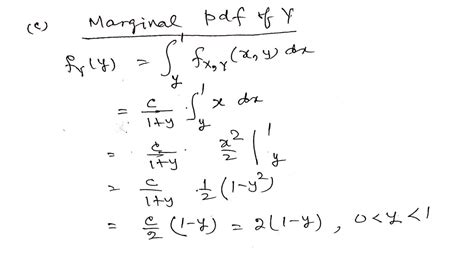 (c) Marginal pdf of Y
f_Y(y) = ∫_y^1 f_{X,Y}(x,y) dx
= c/(1+y) · ∫_y^1 x dx
= c/(1+y) x²/2 |_y^1
= c/(1+y) 1/2 (1-y²)
= c/2 (1-y) = 2(1-y), 0<y<1